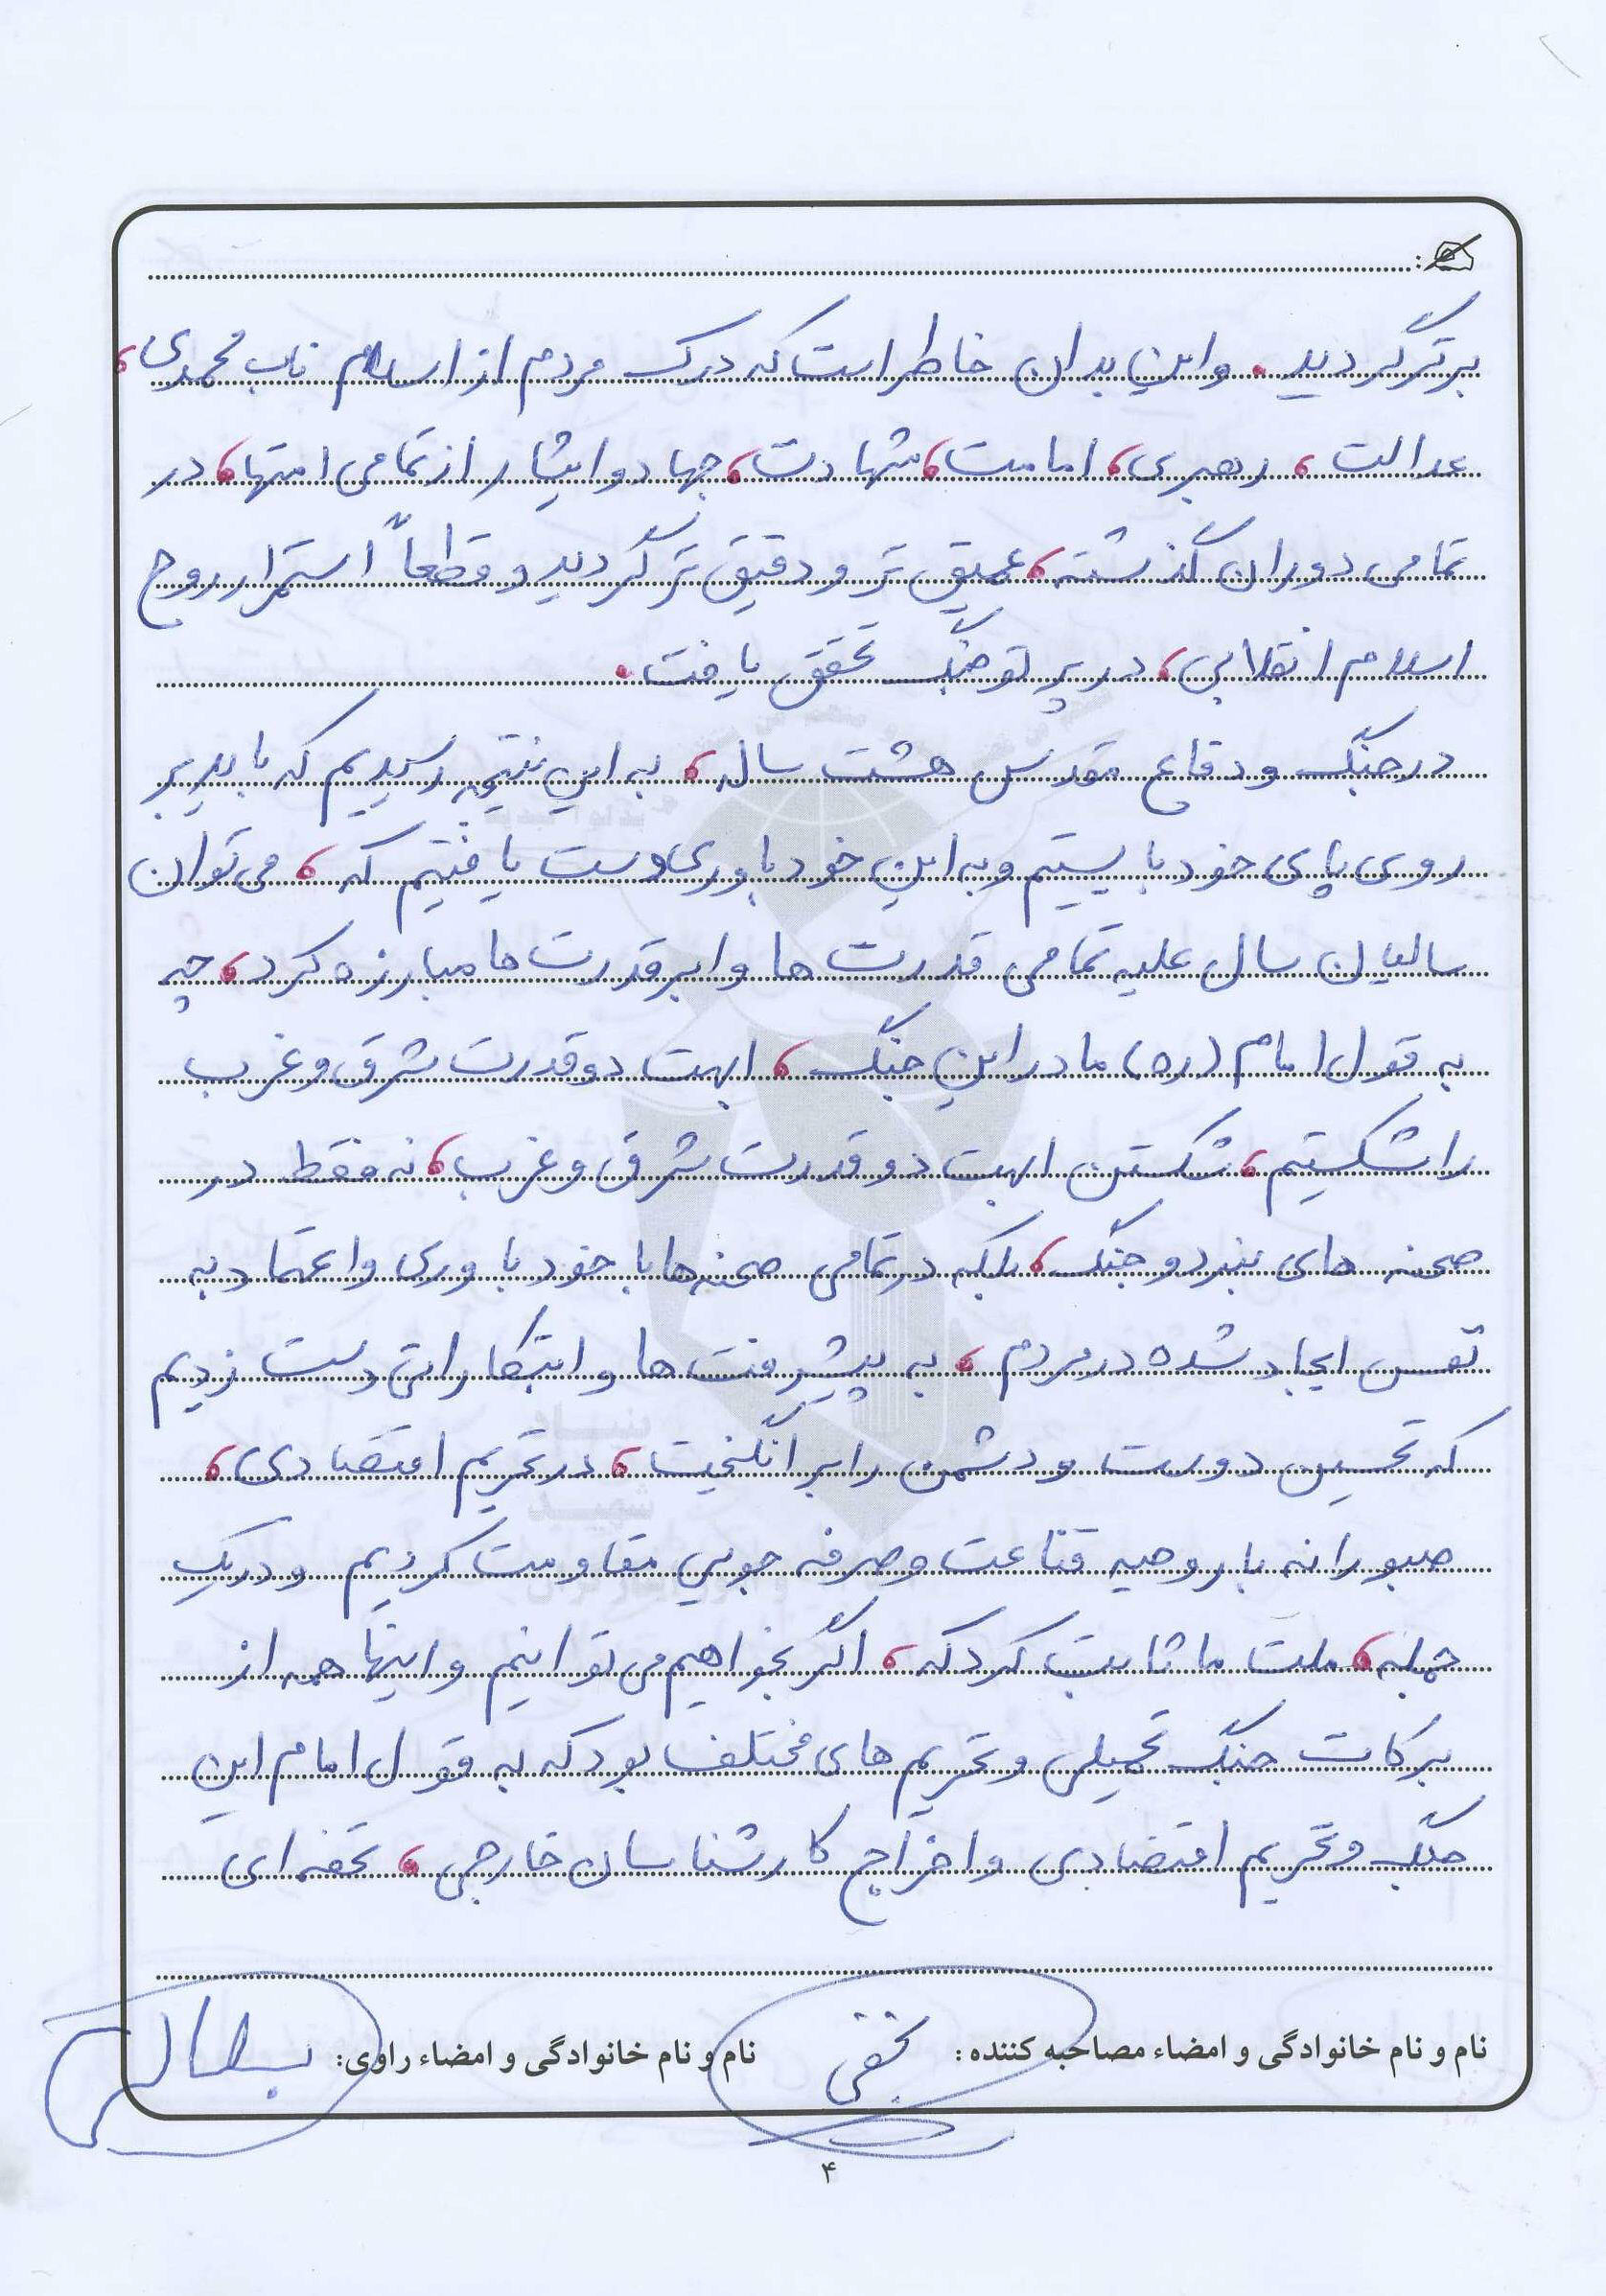 برتر گردید. و این بدان خاطر است که درک مردم از اسلام ناب محمدی،
عدالت، رهبری، امامت، شهادت، جهاد و ایثار از تمامی امتها، در
تمامی دوران گذشته، عمیق تر و دقیق تر گردید و قطعاً استمرار روح
اسلام انقلابی، در پرتو جنگ تحقق یافت.
در جنگ و دفاع مقدس هشت ساله، به این نتیجه رسیدیم که باید بر
روی پای خود بایستیم و به این خود باوری دست یافتیم که، می توان
سالیان سال علیه تمامی قدرت ها و ابرقدرت ها مبارزه کرد، چه
به قول امام (ره) ما در این جنگ، ابهت دو قدرت شرق و غرب
را شکستیم، شکستن ابهت دو قدرت شرق و غرب، نه فقط در
صحنه های نبرد و جنگ، بلکه در تمامی صحنه ها با خود باوری و اعتماد به
نفس ایجاد شده در مردم، به پیشرفت ها و ابتکاراتی دست زدیم
که تحسین دوست و دشمن را برانگیخت، در تحریم اقتصادی،
صبورانه با روحیه قناعت و صرفه جویی مقاومت کردیم و در یک
جمله، ملت ما ثابت کرد که، اگر بخواهیم می توانیم و اینها همه از
برکات جنگ تحمیلی و تحریم های مختلف بود که به قول امام این
جنگ و تحریم اقتصادی و اخراج کارشناسان خارجی، تحفه ای
نام و نام خانوادگی و امضاء مصاحبه کننده: نام و نام خانوادگی و امضاء راوی:
۴